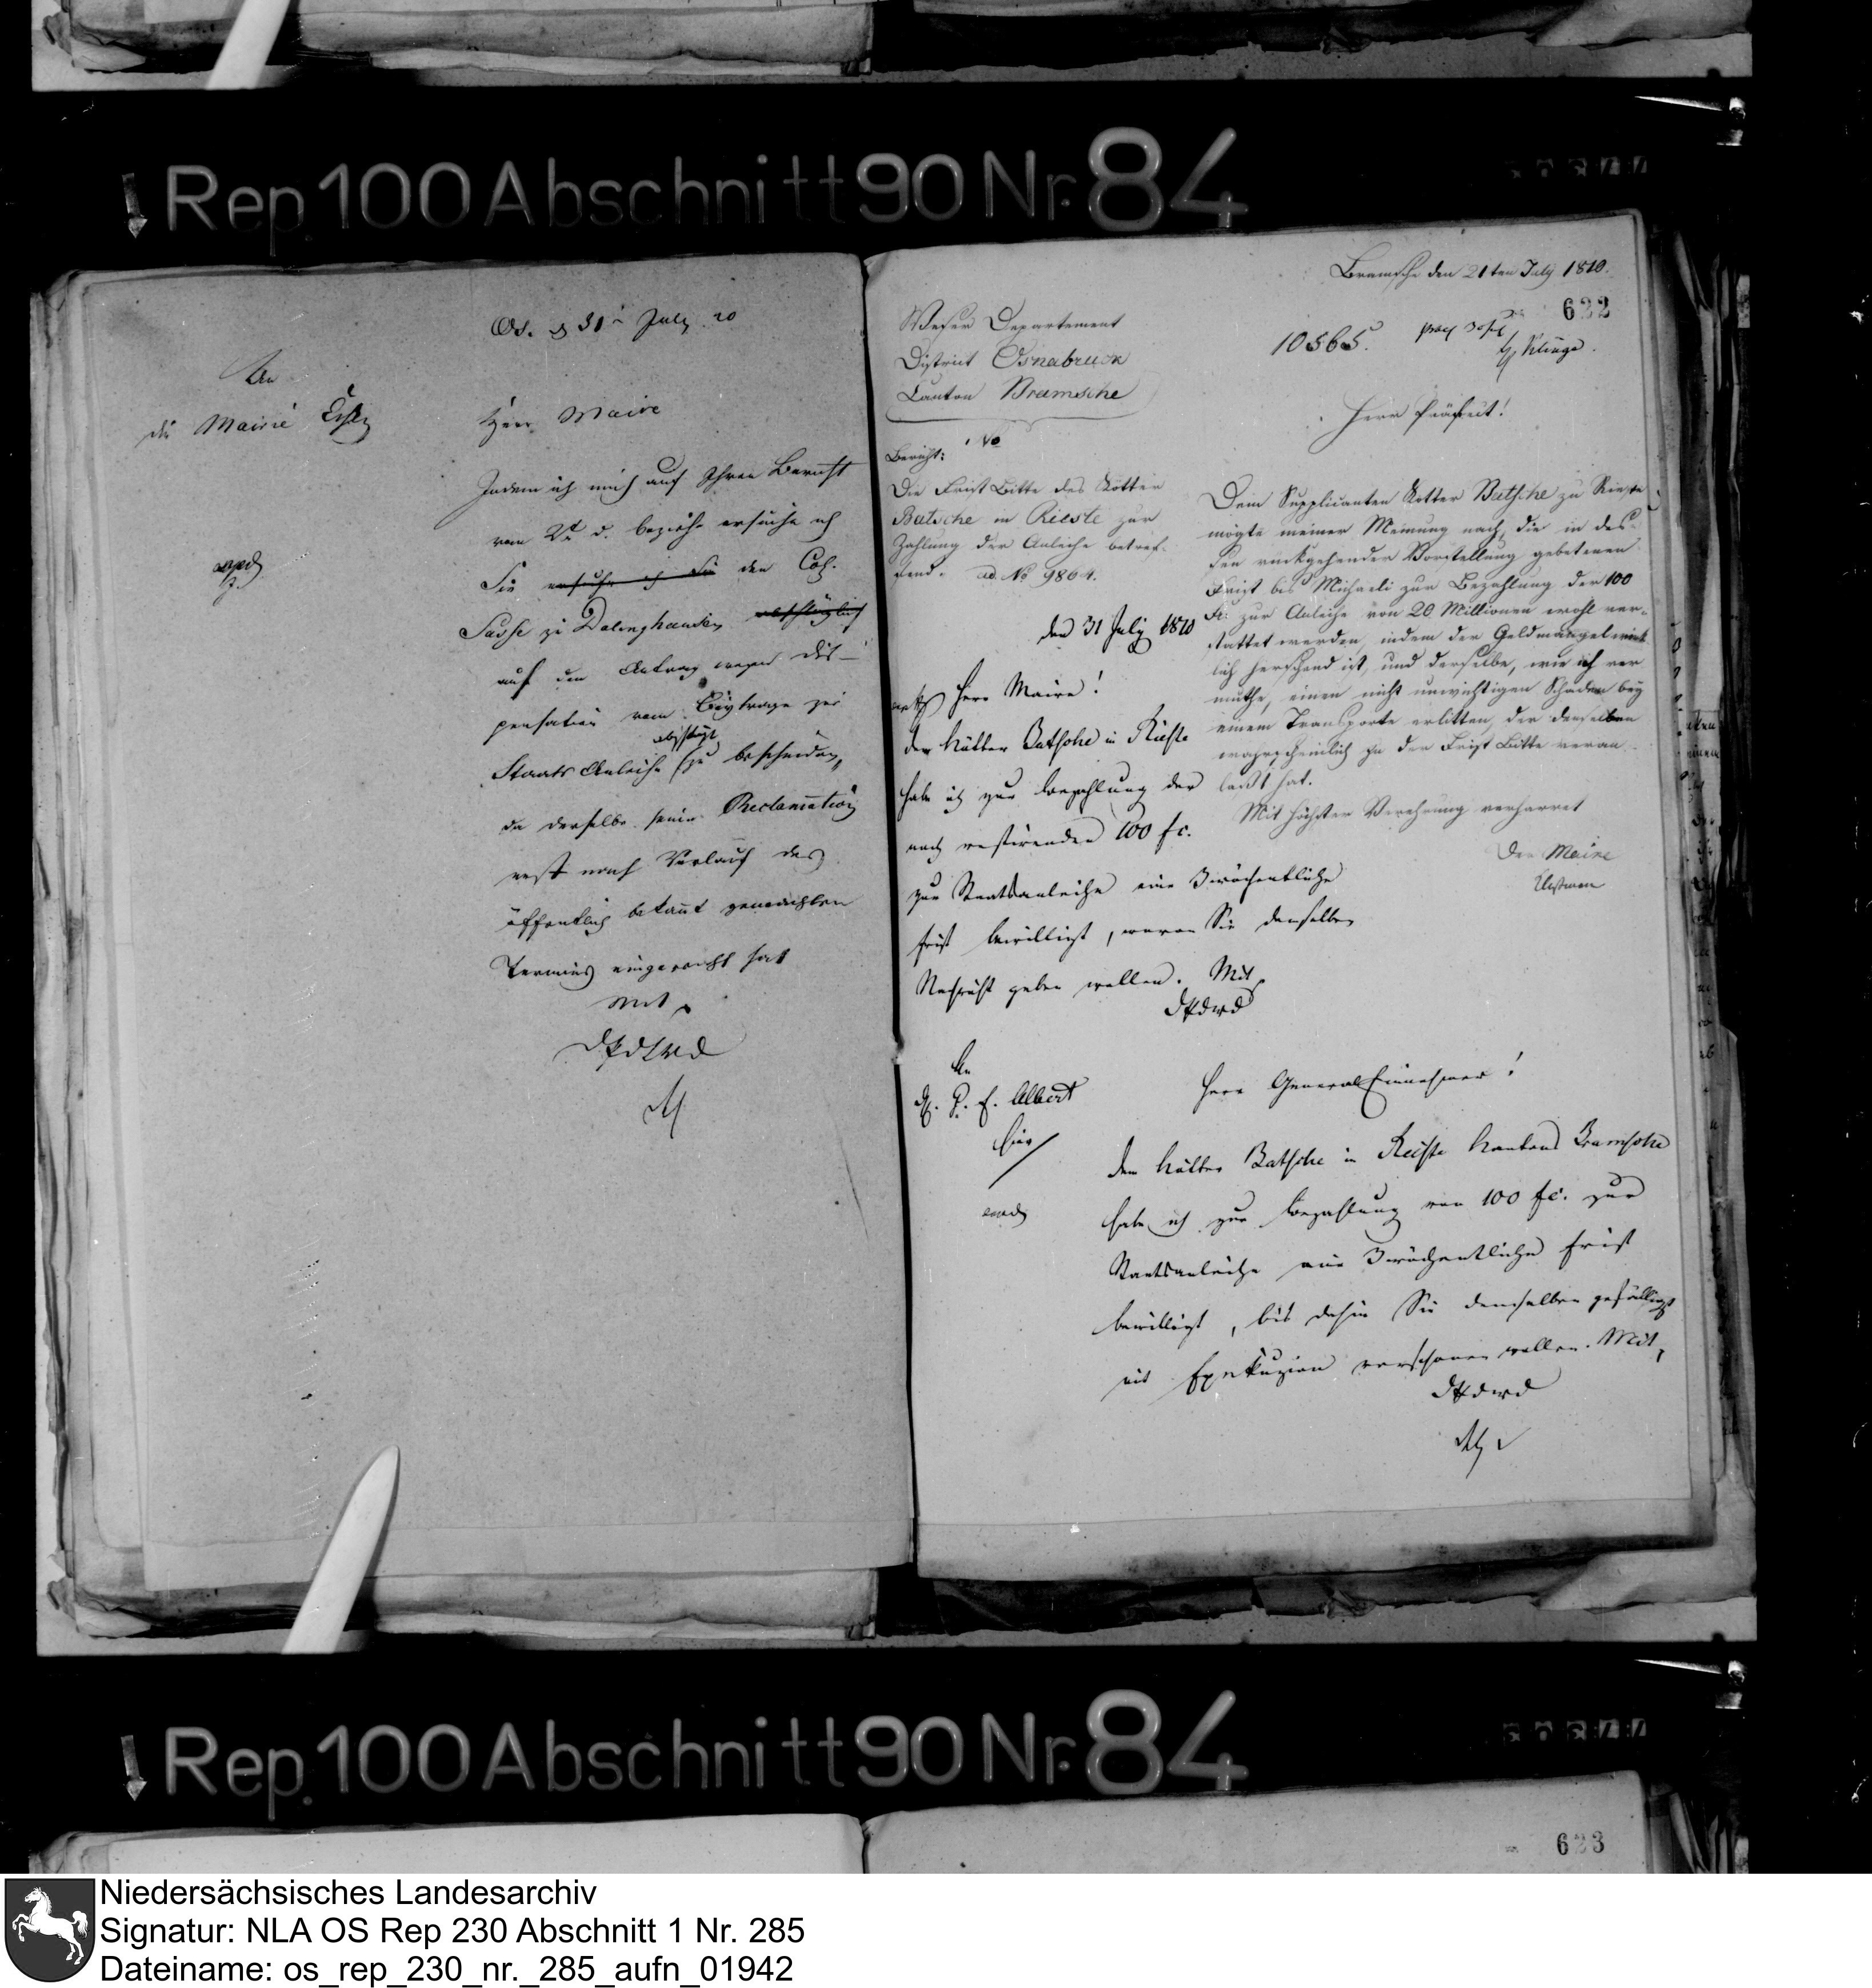 Rep. 100 Abschnitt 90 Nr. 84
Os. d 31t July 10
An
die Mairie Essen
Herr Maire
Indem ich mich auf Ihren Bericht
vom 2t d. beziehe ersuche ich
Sie ersuche ich Sie den Col.
Sasse zu Dalinghausen abschläglich
auf den Antrag wegen Dis-
pensation vom Beytrage zur
abschlägl.
Staats Anleihe zu bescheiden,
da derselbe seine Reclamation
erst nach Verlauf des
öffentlich bekannt gemachten
Termins eingereicht hat
Mit
Bramsche den 21ten July 1810.
622
10565.
Weser Departement
District Osnabruck
Canton Bramsche
Herr Präfect!
No
Bericht:
Die Frist Bitte des Kötter
Batsche in Rieste zur
Zahlung der Anleihe betref-
fend. ad No 9864.
Dem Supplicanten Kötter Batsche zu Rieste
mögte meiner Meinung nach, die in des-
sen rückgehender Vorstellung gebetenen
Frist bis Michaeli zur Bezahlung der 100
Fr. zur Anleihe von 20 Millionen wohl ver-
stattet werden, indem der Geldmangel wirk-
lich herrschend ist, und derselbe, wie ich ver
muthe, einen nicht unwichtigen Schaden bey
einem Transporte erlitten, der denselben
wahrscheinlich zu der Frist Bitte veran-
laßt hat.
Mit höchster Verehrung verharret
Der Maire
den 31 July 1810
Herr Maire!
Dem Kötter Batsche in Rieste
habe ich zur Bezahlung der
noch restirenden 100 fc.
zur Staatsanleihe eine 3wöchentliche
Frist bewilligt, wovon Sie demselben
Nachricht geben wollen. Mit
An
H. G. E. Albert
hier
Herr General Einnehmer!
Dem Kötter Batsche in Rieste Kantons Bramsche
habe ich zur Bezahlung von 100 fc. zur
Staatsanleihe eine 3wöchentliche Frist
bewilligt, bis dahin Sie denselben gefälligst
mit Exekuzion verschonen wollen. Mit
Rep. 100 Abschnitt 90 Nr. 84
623
Niedersächsisches Landesarchiv
Signatur: NLA OS Rep 230 Abschnitt 1 Nr. 285
Dateiname: os_rep_230_nr._285_aufn_01942